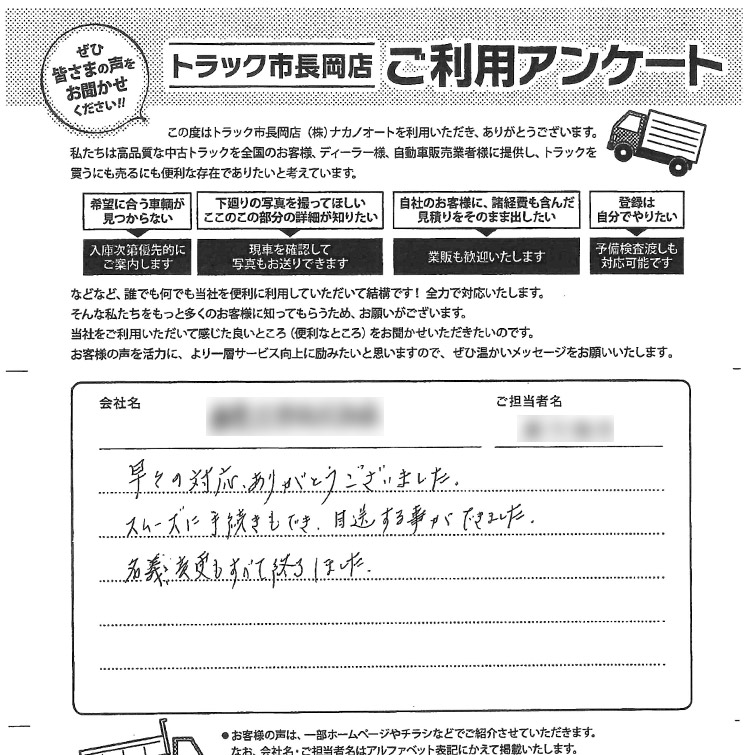 ぜひ
皆さまの声を
お聞かせ
ください!!
トラック市長岡店 ご利用アンケート
この度はトラック市長岡店（株）ナカノオートを利用いただき、ありがとうございます。
私たちは高品質な中古トラックを全国のお客様、ディーラー様、自動車販売業者様に提供し、トラックを
買うにも売るにも便利な存在でありたいと考えています。
希望に合う車輌が
見つからない
入庫次第優先的に
ご案内します
下廻りの写真を撮ってほしい
ここのこの部分の詳細が知りたい
現車を確認して
写真もお送りできます
自社のお客様に、諸経費も含んだ
見積りをそのまま出したい
業販も歓迎いたします
登録は
自分でやりたい
予備検査渡しも
対応可能です
などなど、誰でも何でも当社を便利に利用していただいて結構です！全力で対応いたします。
そんな私たちをもっと多くのお客様に知ってもらうため、お願いがございます。
当社をご利用いただいて感じた良いところ（便利なところ）をお聞かせいただきたいのです。
お客様の声を活力に、より一層サービス向上に励みたいと思いますので、ぜひ温かいメッセージをお願いいたします。
会社名
ご担当者名
早々の対応、ありがとうございました。
スムーズに手続きもでき、回送する事ができました。
名義変更もすべて終了しました。
●お客様の声は、一部ホームページやチラシなどでご紹介させていただきます。
なお、会社名・ご担当者名はアルファベット表記にかえて掲載いたします。